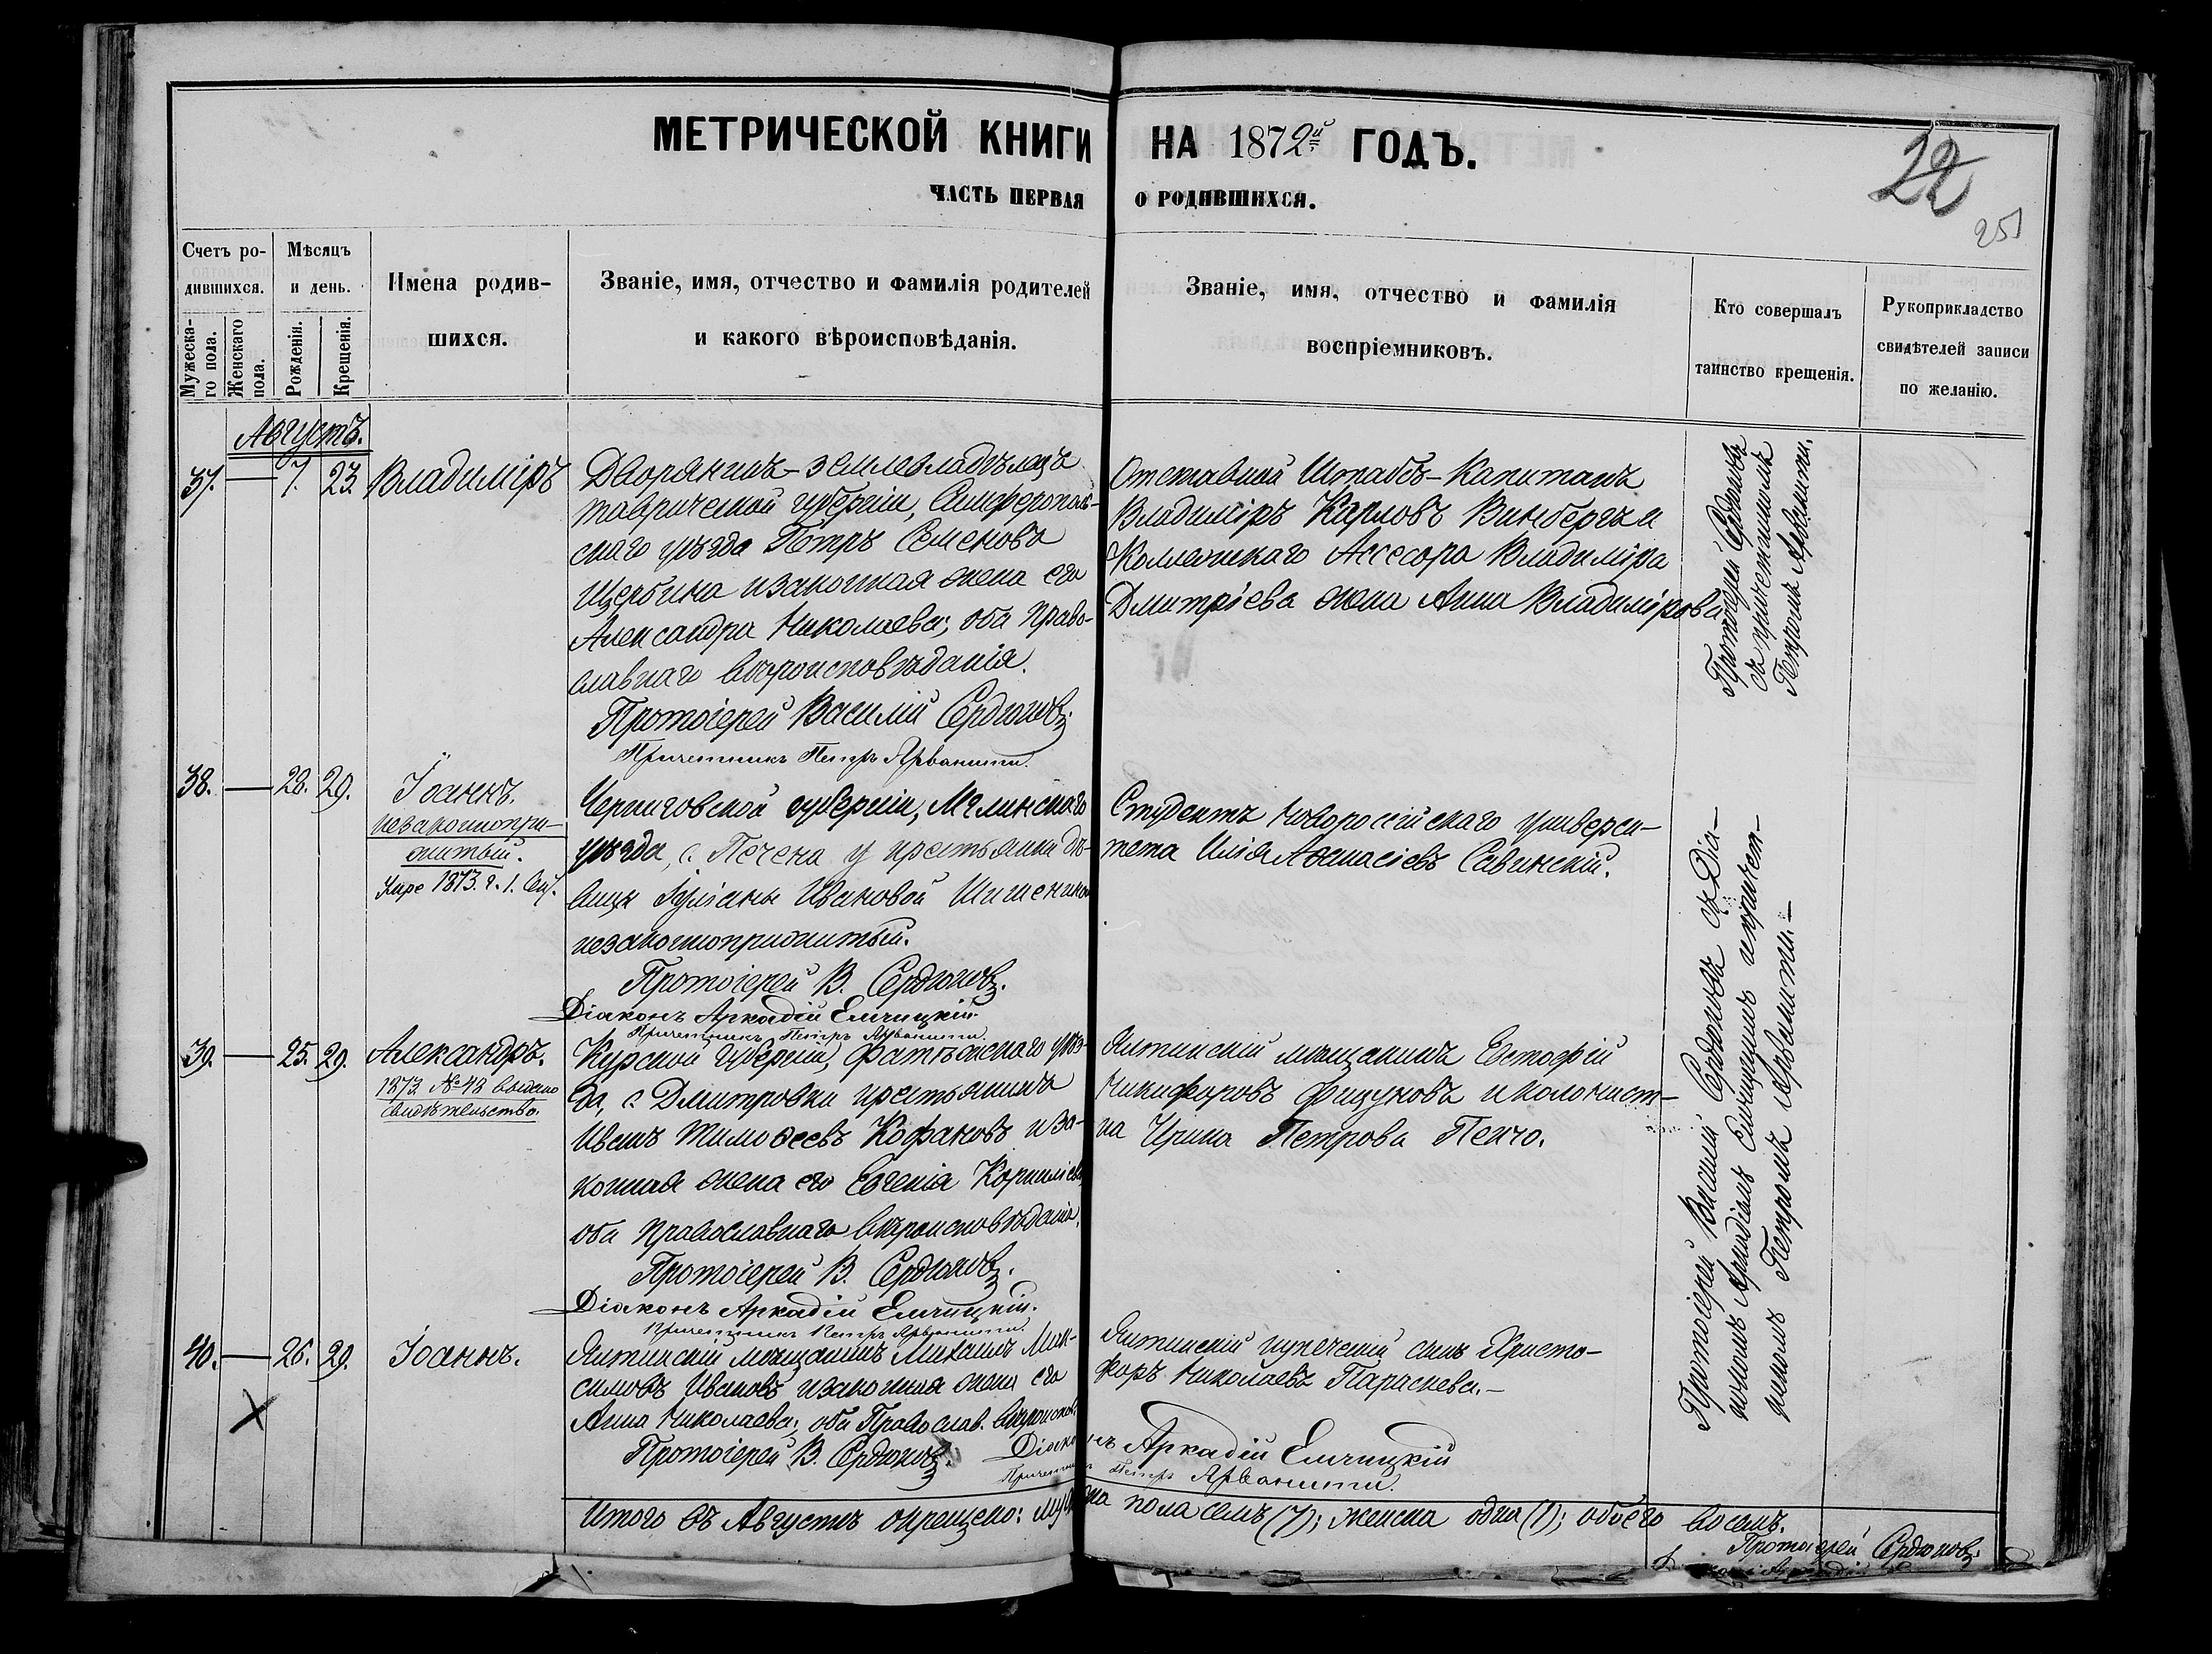 МЕТРИЧЕСКОЙ КНИГИ НА 1872й ГОДЪ.
ЧАСТЬ ПЕРВАЯ О РОДИВШИХСЯ.
22
251
Счетъ ро-
дившихся.
Мужеска-
го пола.
Женскаго
пола.
Мѣсяцъ
и день.
Рожденія.
Крещенія.
Имена родив-
шихся.
Званіе, имя, отчество и фамилія родителей
и какого вѣроисповѣданія.
Званіе, имя, отчество и фамилія
воспріемниковъ.
Кто совершалъ
таинство крещенія.
Рукоприкладство
свидѣтелей записи
по желанію.
Августъ.
37. — 7. 23. Владиміръ
Дворянинъ-землевладѣлецъ
таврической губерніи, Симферополь-
скаго уѣзда Петръ Семеновъ
Щербина и законная жена его
Александра Николаева; оба право-
славнаго вѣроисповѣданія.
Протоіерей Василій Сердюковъ
Причетникъ Петръ Арванити.
Отставной Штабсъ-Капитанъ
Владиміръ Карловъ Винбергъ и
Коллежскаго Ассесора Владиміра
Дмитріева жена Анна Владимірова
Протоіерей Сердюковъ
съ причетникомъ
Петромъ Арванити.
38. — 28. 29. Іоаннъ.
незаконнопри-
житый.
1873. г. 1.
Черниговской губерніи, Мглинскаго
уѣзда, с. Печена у крестьянки дѣ-
вицы Іуліаны Ивановой
незаконноприжитый.
Протоіерей В. Сердюковъ.
Діаконъ Аркадій Емчицкій.
Причетникъ Петръ Арванити.
Студентъ Новороссійскаго универси-
тета Илія Аѳанасіевъ Савинскій.
Протоіерей Василій Сердюковъ съ Діа-
кономъ Аркадіемъ Емчицкимъ и причет-
никомъ Петромъ Арванити.—
39. — 25. 29. Александръ.
1873 № 43 выдано
свидѣтельство.
Курской губерніи, Фатежскаго уѣз-
да, с. Дмитровки крестьянинъ
Иванъ Тимоѳеевъ Кофановъ и за-
конная жена его Евгенія Корниліева,
оба православнаго вѣроисповѣданія.
Протоіерей В. Сердюковъ.
Діаконъ Аркадій Емчицкій.
Причетникъ Петръ Арванити.
Ялтинскій мѣщанинъ Евстафій
Никифоровъ Фицуковъ и колонист-
ка Ирина Петрова Пенчо.
40. — 26. 29. Іоаннъ.
Ялтинскій мѣщанинъ Михаилъ Мак-
симовъ Ивановъ и законная жена его
Анна Николаева; оба Православ. вѣроисповѣд.
Протоіерей В. Сердюковъ. Діаконъ Аркадій Емчицкій
Причетникъ Петръ Арванити.
Ялтинскій купеческій сынъ Христо-
форъ Николаевъ Параскева.—
Итого въ Августѣ окрещено: мужеска пола семь (7); женска одна (1); обоего восемь.
Протоіерей Сердюковъ